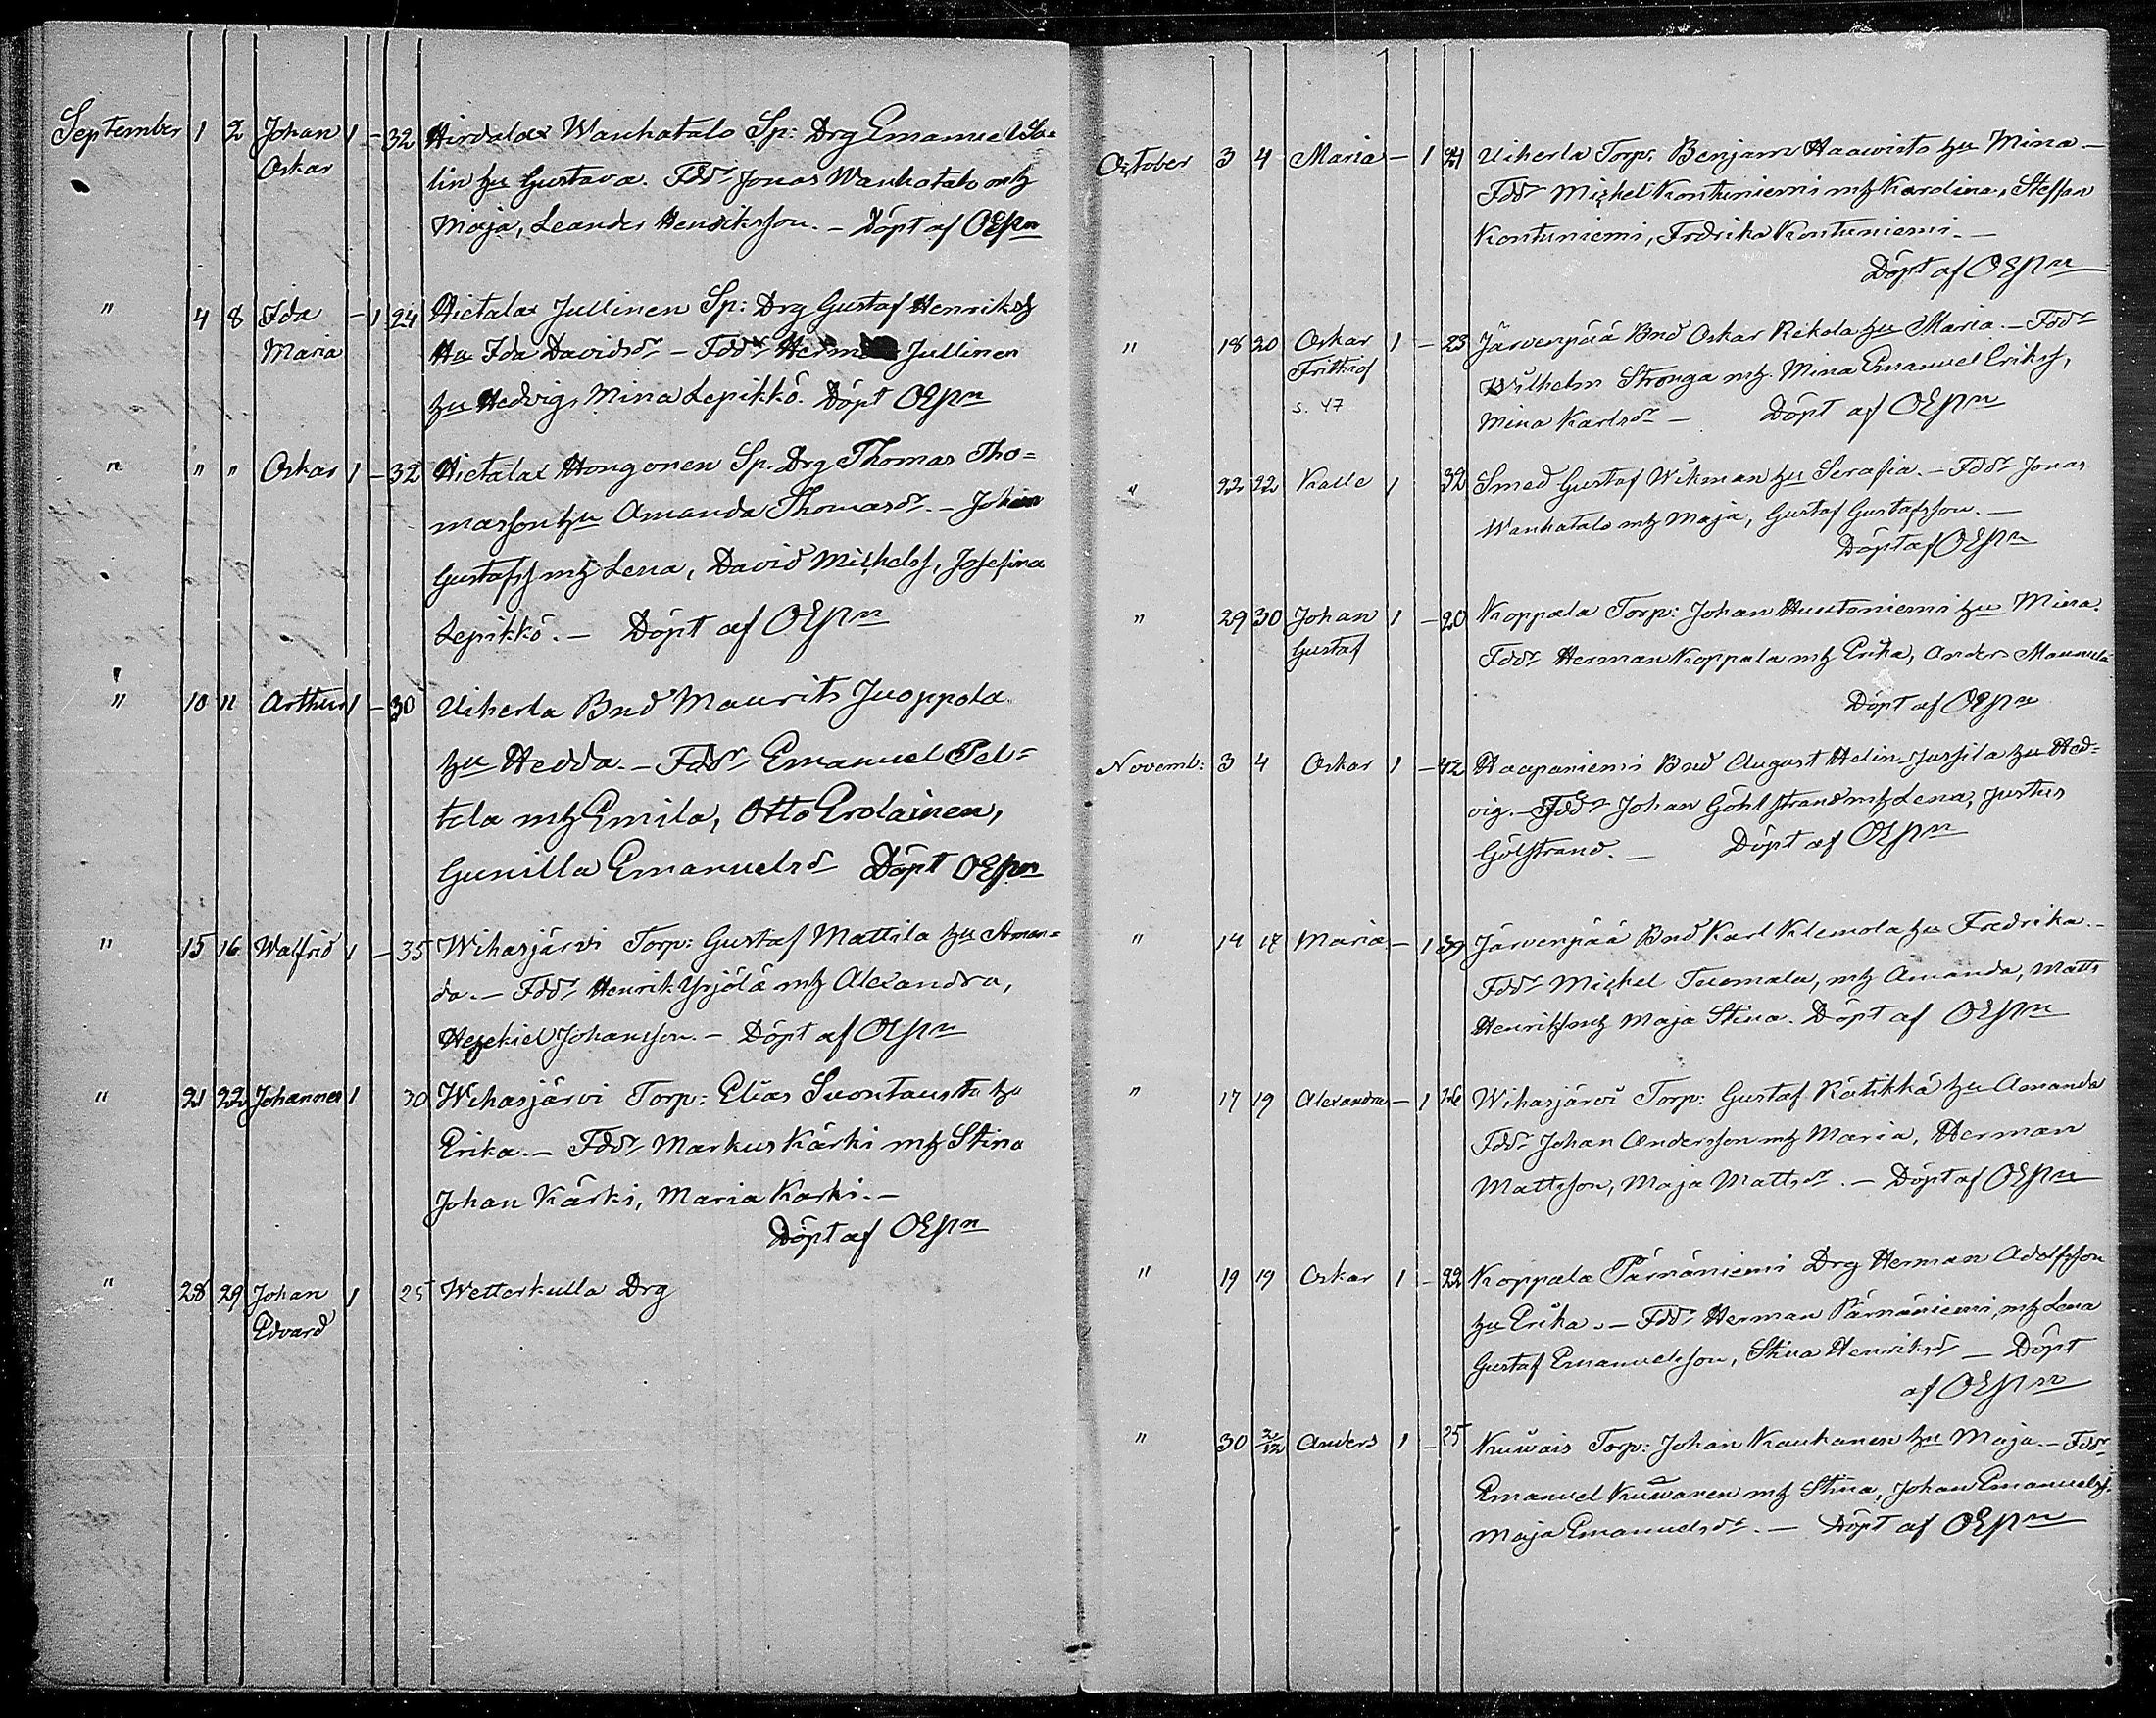 September 1 2 Johan 1 - 32 Hirdala Wanhatalo Sp: Drg Emanuel Sa=
Oskar lin hu Gustava. Fddr Jonas Wanhatalo mh
Maja, Leander Henriksson. - Döpt af OEspn
" 4 8 Ida - 1 24 Hietala Jullinen Sp: Drg Gustaf Henrikss
Maria Hu Ida Davidsdr - Fddr Herm Jullinen
hu Hedvig, Mina Lepikkö. Döpt OEspn
" " " Oskar 1 - 32 Hietala Hongonen Sp. Drg Thomas Tho=
masson hu Amanda Thomasdr. - Johan
Gustafss mh Lena, David Michelss, Josefina
Lepikkö. - Döpt af OEspn
" 10 11 Arthur 1 - 30 Uiherla Bnd Maurits Juoppola
hu Hedda. - Fddr Emanuel Pel=
tola mh Emila, Otto Erolainen,
Gunilla Emanuelsd Döpt OEspn
" 15 16 Walfrid 1 - 35 Wihasjärvi Torp: Gustaf Mattila hu Aman=
da. - Fddr Henrik Yrjölä mh Alexandra,
Hesekiel Johansson. - Döpt af OEspn
" 21 22 Johannes 1 30 Wihasjärvi Torp: Elias Suontausta hu
Erika. - Fddr Markus Kärki mh Stina
Johan Kärki, Maria Karki. -
Döpt af OEspn
" 28 29 Johan 1 25 Wetterkulla Drg
Edvard
October 3 4 Maria - 1 Uiherla Torp. Benjam Haavisto hu Mina -
Fddr Michel Kontuniemi mh Karolina, Steffan
Kontuniemi, Fredrika Kontuniemi. -
Döpt af OEspn
" 18 20 Oskar 1 - 23 Järvenpää Bnd Oskar Rekola hu Maria. - Fddr
Frithiof Wilhelm Stronga mh. Mina Emanuel Erikss,
s. 47 Mina Karlsdr - Döpt af OEspn
" 22 22 Kalle 1 32 Smed Gustaf Wikman hu Serafia. - Fddr Jonas
Wanhatalo mh Maja, Gustaf Gustafsson. -
Döpt af OEspn
" 29 30 Johan 1 - 20 Koppala Torp: Johan Huutoniemi hu Mina.
Gustaf Fddr Herman Koppala mh Erika, Anders Mannula
Döpt af OEspn
Novemb: 3 4 Oskar 1 - 42 Haapaniemi Bnd August Helin Jussila hu Hed=
vig. - Fddr Johan Göhlstrand mh Lena, Justus
Gölstrand. - Döpt af OEspn
" 14 17 Maria - 1 39 Järvenpää Bnd Karl Klemola hu Fredrika. -
Fddr Michel Tuomala, mh Amanda, Matts
Henrikss mh Maja Stina. Döpt af OEspn
" 17 19 Alexandra - 1 Wihasjärvi Torp: Gustaf Rätikkä hu Amanda
Fddr Johan Andersson mh Maria, Herman
Mattsson, Maja Mattsdr. - Döpt af OEspn
" 19 19 Oskar 1 - 22 Koppala Pärnäniemi Drg Herman Adolfsson
hu Erika. - Fddr Herman Pärnäniemi, mh Lena
Gustaf Emanuelsson, Stina Henriksd - Döpt
af OEspn
" 30 2/12 Anders 1 - 25 Kuivais Torp: Johan Kaukanen hu Maja. - Fddr
Emanuel Kuivanen mh Stina, Johan Emanuelss.
Maja Emanuelsdr. - Döpt af OEspn